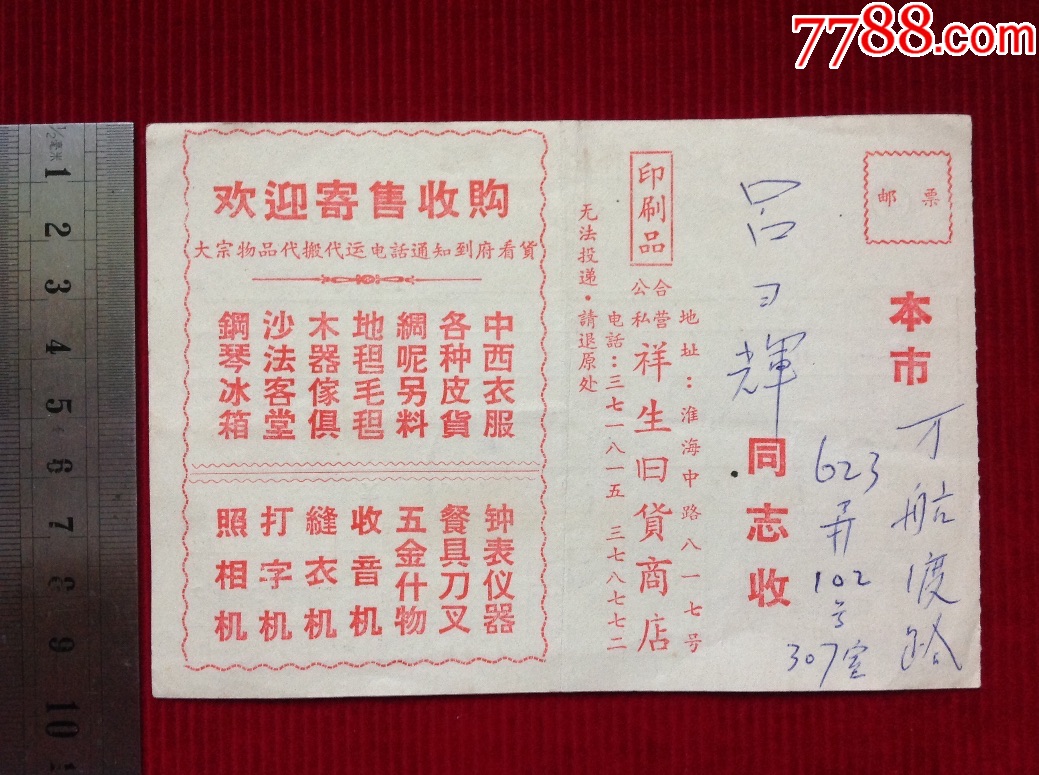 7788.com
邮票
本市
万航渡路
623弄102号
307室
吕
輝
同志收
印刷品
公私合营 祥生旧貨商店
地址：淮海中路八一七号
电話：三七一八一五 三七八七七二
无法投递·請退原处
欢迎寄售收购
大宗物品代搬代运电話通知到府看貨
中西衣服
各种皮貨
綢呢另料
地毯毛毯
木器傢俱
沙法客堂
鋼琴冰箱
钟表仪器
餐具刀叉
五金什物
收音机
縫衣机
打字机
照相机
1/2毫米
1 2 3 4 5 6 7 8 9 10